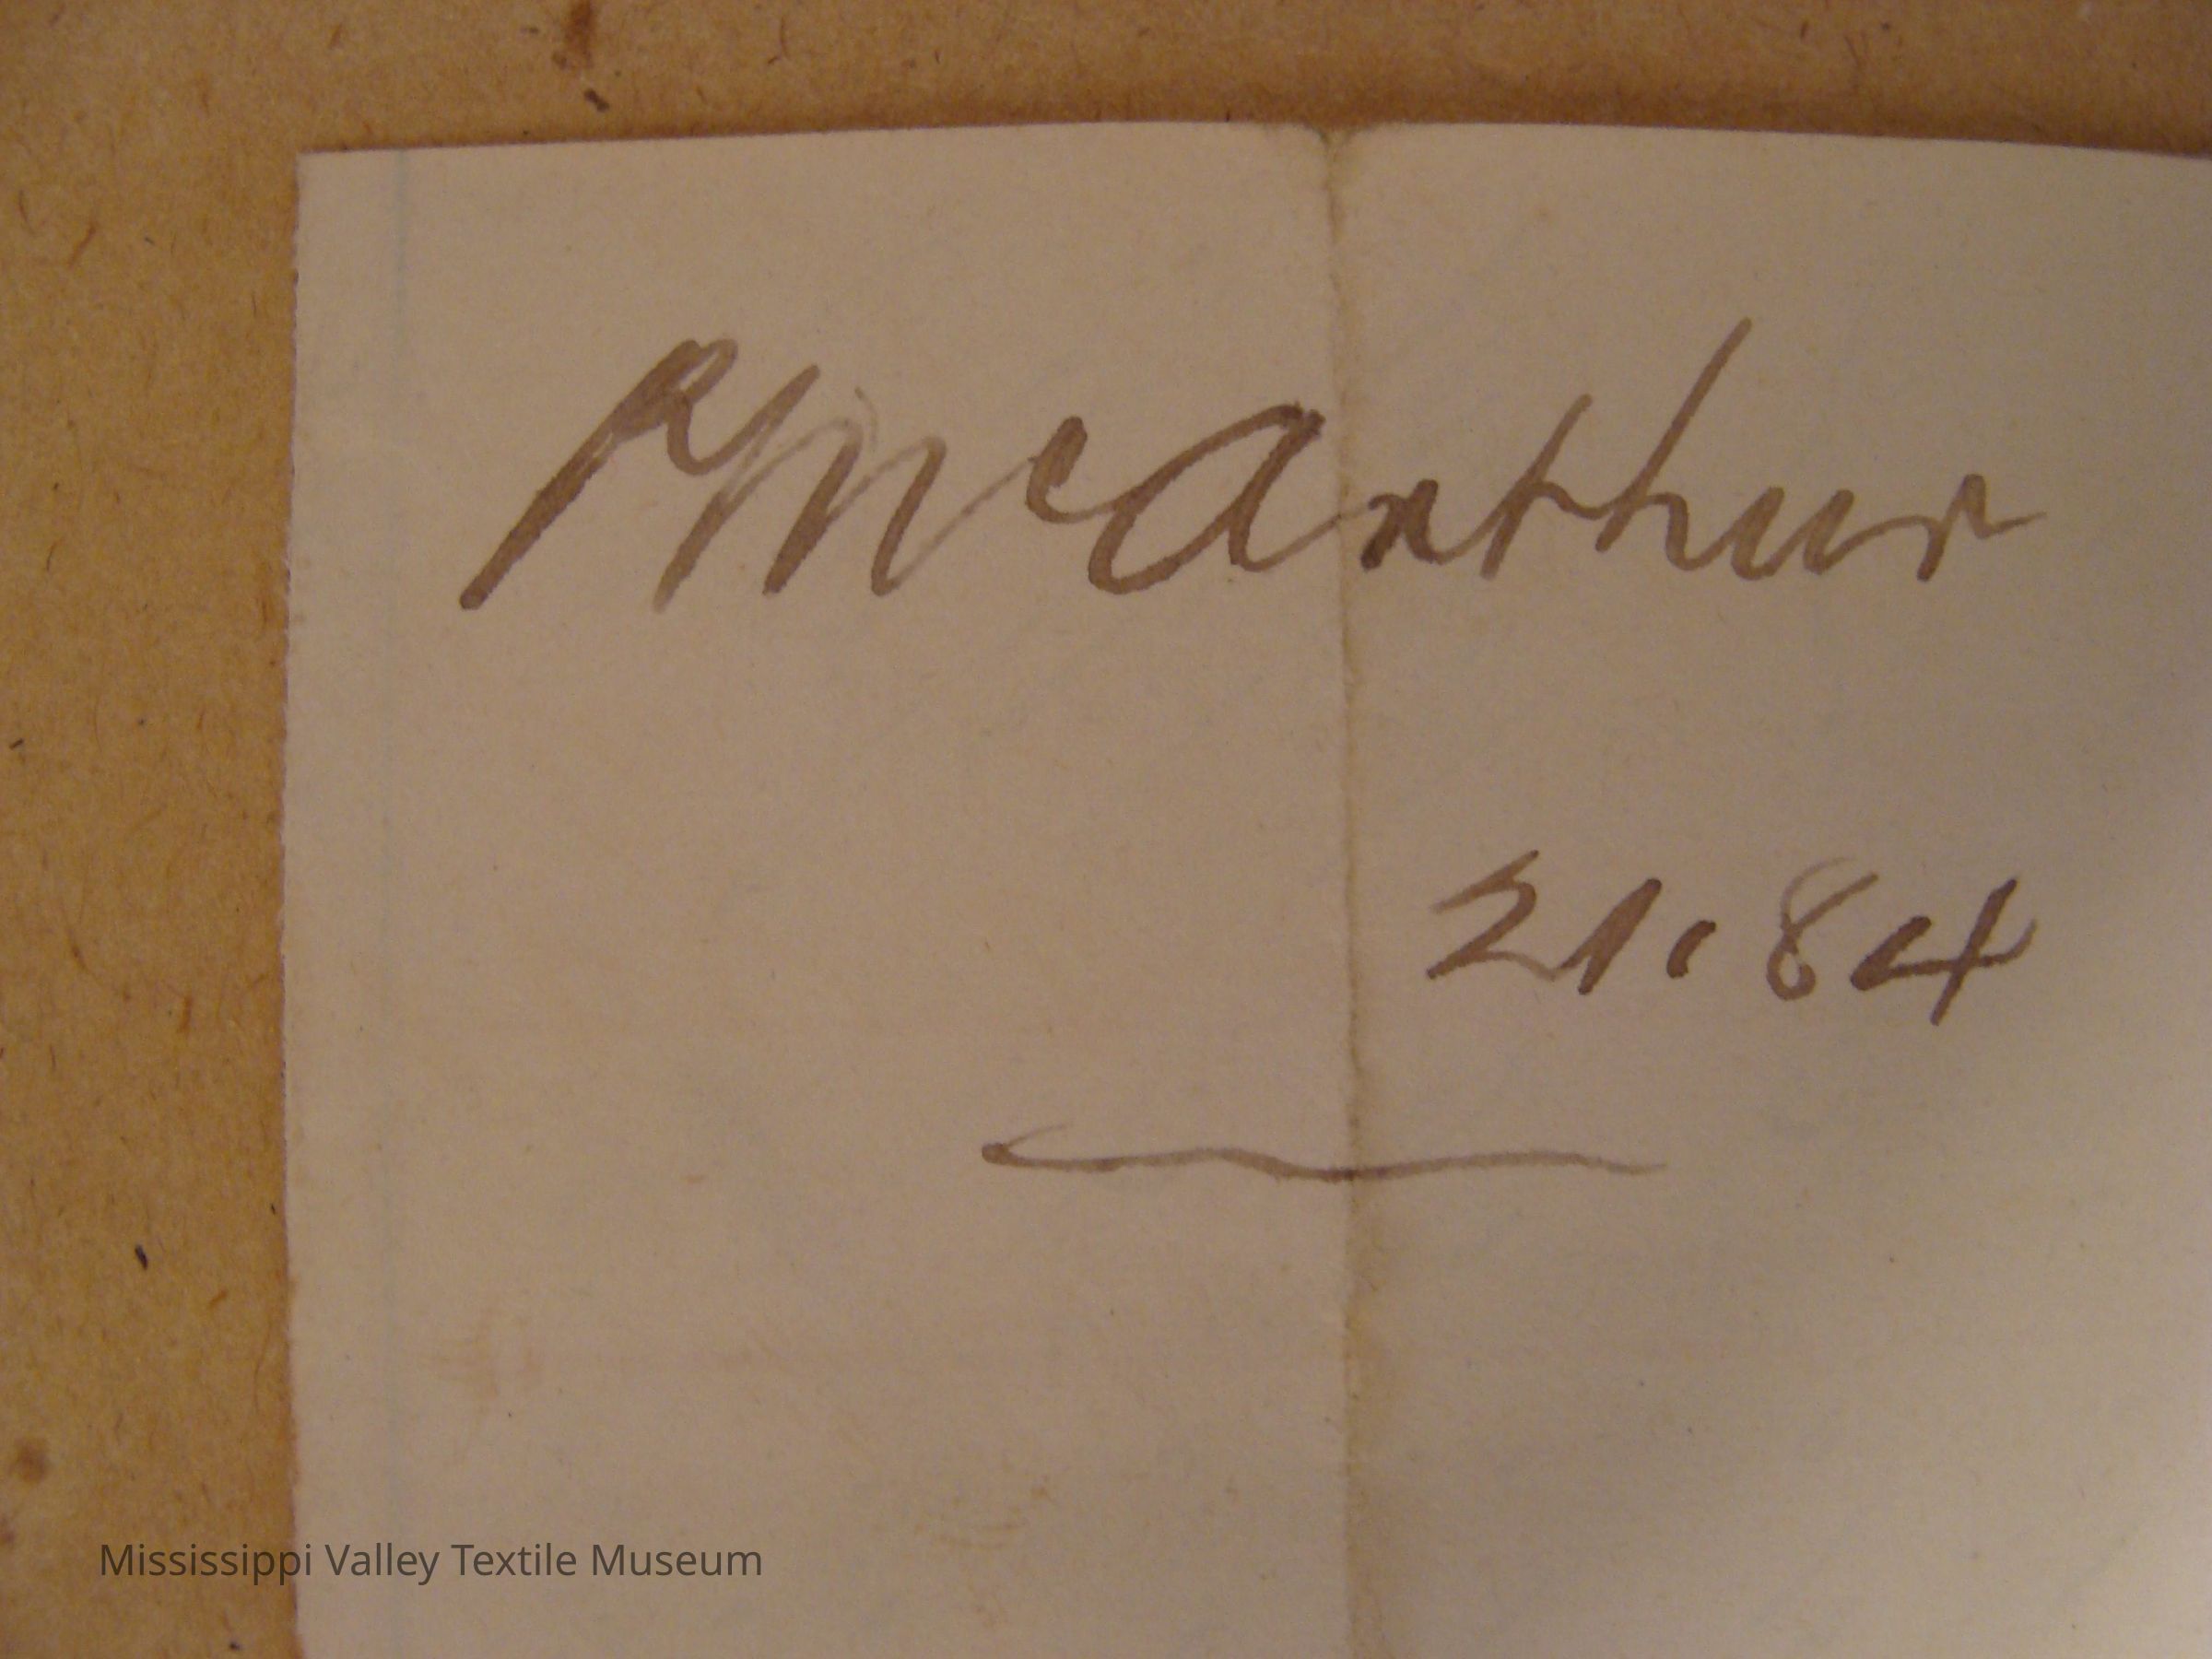 R McArthur
21.84
Mississippi Valley Textile Museum